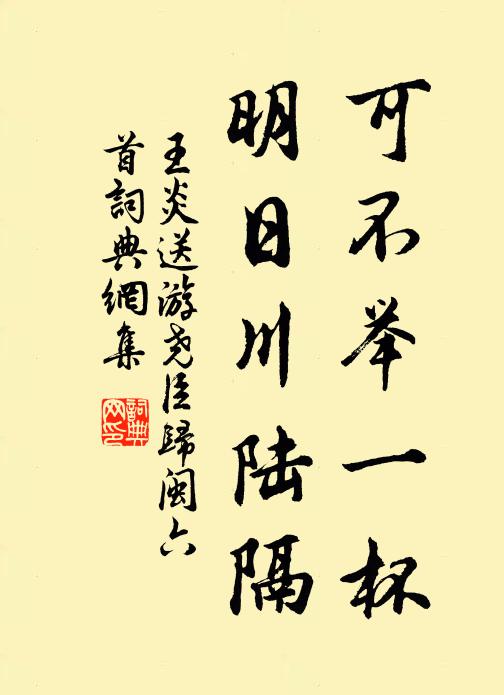 可不举一杯
明日川陆隔
王炎送游尧臣歸闽六
首詞典網集
詞典
网印